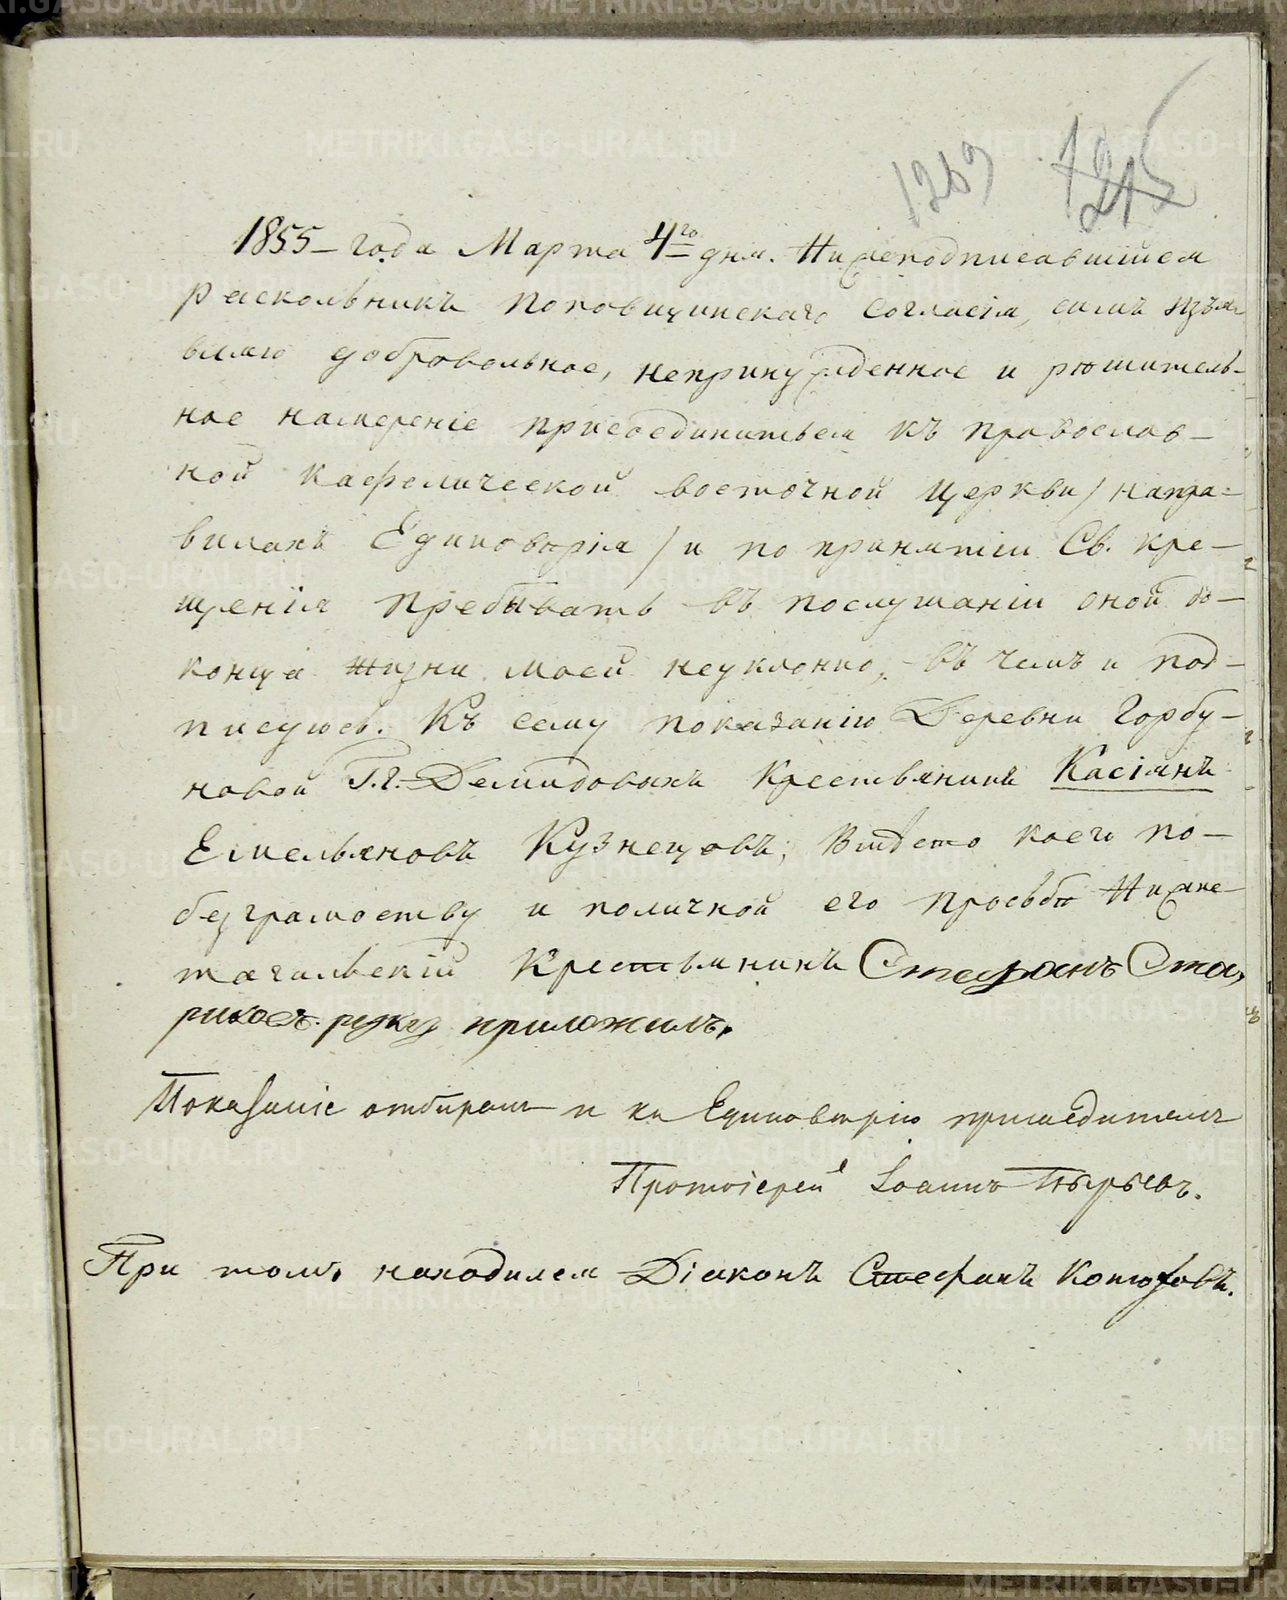 1269 1215
1855 – года Марта 4го дня. Нижеподписавшійся
раскольникъ поповщинскаго согласія, симъ изъя-
вляю добровольное, непринужденное и рѣшитель-
ное намѣреніе присоединиться къ православ-
ной каѳолической восточной церкви / на пра-
вилахъ Единовѣрія / и по принятіи Св. кре-
щенія пребывать въ послушаніи оной до
конца жизни моей неуклонно, въ чемъ и под-
писуюсь. Къ сему показанію Деревни Горбу-
новой Г.г. Демидовыхъ крестьянинъ Касіянъ
Емельяновъ Кузнецовъ, вмѣсто коего по
безграмотству и по личной его прозьбѣ Нижне-
тагильскій крестьянинъ Стефанъ Ста-
риковъ руку приложилъ.
Показаніе отбиралъ и къ Единовѣрію присоединялъ
Протоіерей Іоаннъ Пырьевъ.
При томъ находился Діаконъ Стефанъ